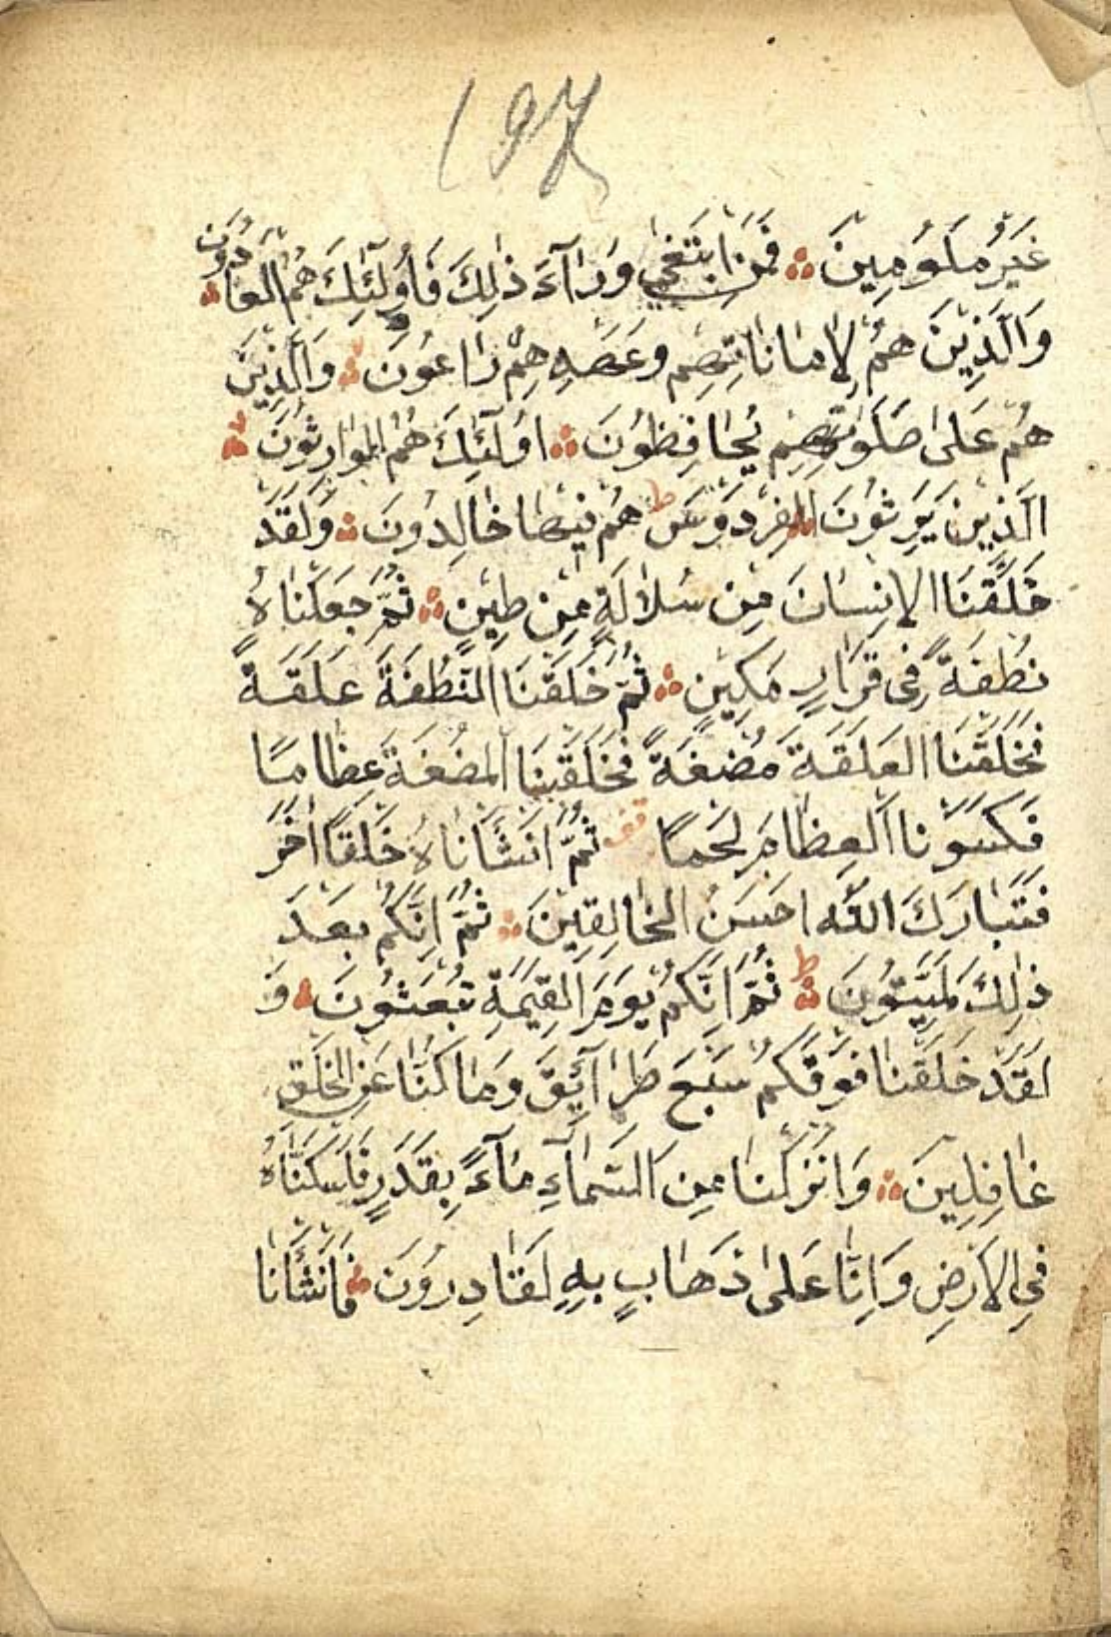 غَيْرُ مَلُومِينَ فَمَنِ ابْتَغٰى وَرَآءَ ذٰلِكَ فَأُولٰٓئِكَ هُمُ العَادُونَ
وَالَّذِينَ هُمْ لِامَانَاتِهِمْ وَعَهْدِهِمْ رَاعُونَ وَالَّذِينَ
هُمْ عَلٰى صَلَوَاتِهِمْ يُحَافِظُونَ اُولٰٓئِكَ هُمُ الوَارِثُونَ
الَّذِينَ يَرِثُونَ الفِرْدَوْسَ ط هُمْ فِيهَا خَالِدُونَ وَلَقَدْ
خَلَقْنَا الاِنسَانَ مِن سُلَالَةٍ مِنْ طِينٍ ثُمَّ جَعَلْنَاهُ
نُطْفَةً فِى قَرَارٍ مَكِينٍ ثُمَّ خَلَقْنَا النُّطْفَةَ عَلَقَةً
فَخَلَقْنَا العَلَقَةَ مُضْغَةً فَخَلَقْنَا المُضْغَةَ عِظَامًا
فَكَسَوْنَا العِظَامَ لَحْمًا قف ثُمَّ اَنْشَأْنَاهُ خَلْقًا اٰخَرَ
فَتَبَارَكَ اللّٰه احْسَنُ الخَالِقِينَ ثُمَّ اِنَّكُمْ بَعْدَ
ذٰلِكَ لَمَيِّتُونَ ط ثُمَّ اِنَّكُمْ يَوْمَ القِيٰمَةِ تُبْعَثُونَ وَ
لَقَدْ خَلَقْنَا فَوْقَكُمْ سَبْعَ طَرَآئِقَ وَمَا كُنَّا عَنِ الخَلْقِ
غَافِلِينَ وَاَنْزَلْنَا مِنَ السَّمَآءِ مَآءً بِقَدَرٍ فَاَسْكَنَّاهُ
فِى الاَرْضِ وَاِنَّا عَلٰى ذَهَابٍ بِهِ لَقَادِرُونَ فَاَنْشَأْنَا